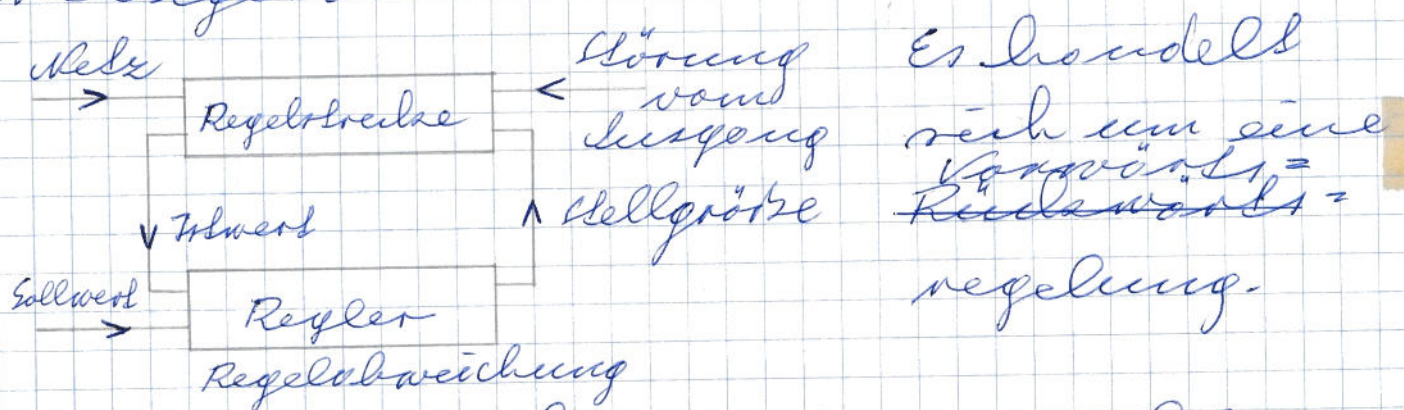 Netz
Regelstrecke
Störung
vom
Ausgang
Istwert
Stellgröße
Sollwert
Regler
Regelabweichung
Es handelt
sich um eine
Vorwärts=
Rückwärts=
regelung.